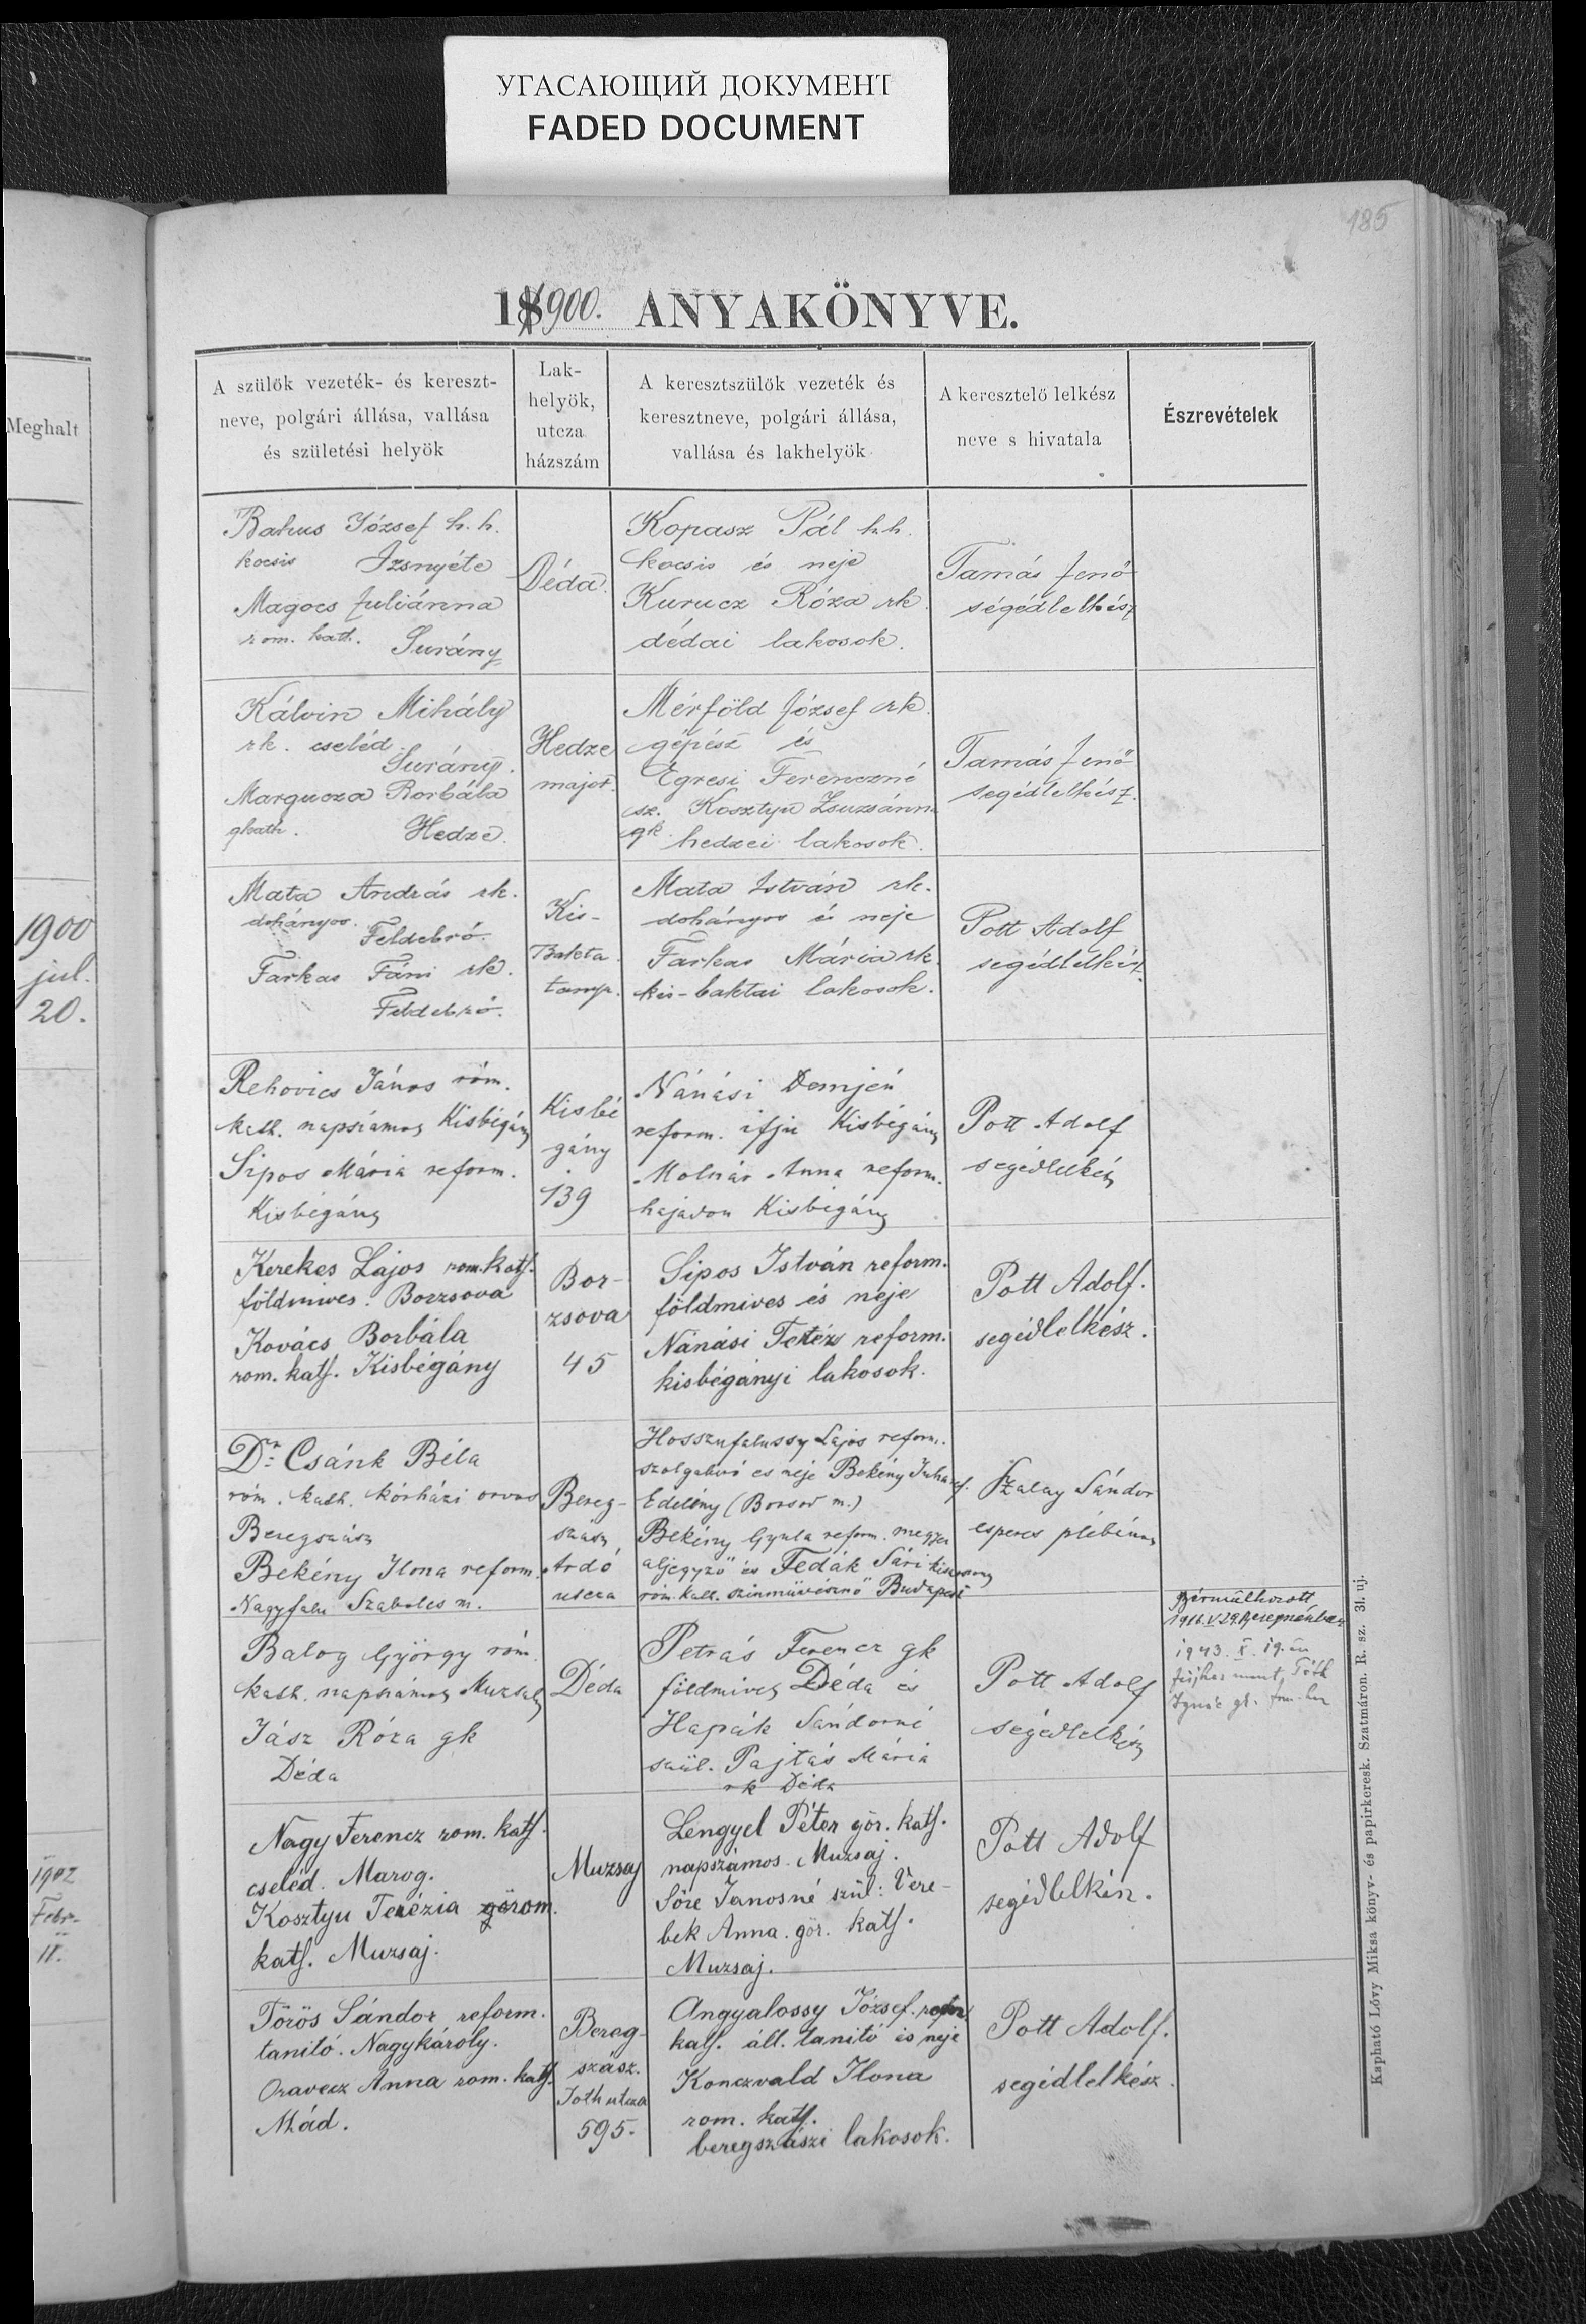 УГАСАЮЩИЙ ДОКУМЕНТ
FADED DOCUMENT
185
18900. ANYAKÖNYVE.
Meghalt
1900
jul.
20.
1902
Febr.
11.
A szülők vezeték- és kereszt-
neve, polgári állása, vallása
és születési helyök
Lak-
helyök,
utcza
házszám
A keresztszülők vezeték és
keresztneve, polgári állása,
vallása és lakhelyök
A keresztelő lelkész
neve s hivatala
Észrevételek
Bakus József h. h.
kocsis Izsnyéte
Magocs Juliánna
rom. kath. Surány
Déda
Kopasz Pál h.h.
kocsis és neje
Kurucz Róza rk.
dédai lakosok.
Tamás Jenő
ségédlelkész
Kálvin Mihály
rk. cseléd.
Surány.
Margucza Borbála
gkath. Hedze.
Hedze
major.
Mérföld József rk.
gépész és
Egresi Ferenczné
sz. Kosztyu Zsuzsánn
gk hedzei lakosok.
Tamás Jenő
segédlelkész.
Mata András rk.
dohányos.
Feldebró.
Farkas Fáni rk.
Feldebró.
Kis-
Bakta
tanya.
Mata István rk.
dohányos és neje
Farkas Mária rk.
kis-baktai lakosok.
Pott Adolf
segédlelkész.
Rehovics János róm.
kath. napszámos Kisbégány
Sipos Mária reform.
Kisbégány
Kisbé
gány
139
Nánási Demjén
reform. ifju Kisbégány
Molnár Anna reform.
hajadon Kisbégány
Pott Adolf
segédlelkész
Kerekes Lajos rom. kath.
földmives. Borzsova
Kovács Borbála
rom. kath. Kisbégány
Bor-
zsova
45
Sipos István reform.
földmives és neje
Nánási Teréz reform.
kisbégányi lakosok.
Pott Adolf.
segédlelkész.
Dr. Csánk Béla
róm. kath. kórházi orvos
Beregszász
Bekény Ilona reform.
Nagyfalu Szabolcs m.
Bereg-
szász
Ardó
utcza
Hosszufalussy Lajos reform.
szolgabiró és neje Bekény ref.
Edelény (Borsod m.)
Bekény Gyula reform. megyei
aljegyző és Fedák Sári kisasszony
róm. kath. szinművésznő Budapest
Szalay Sándor
esperes plébános
Balog György róm.
kath. napszámos Muzsaly
Jász Róza gk
Déda
Déda
Petrás Ferencz gk
földmives Déda és
Hapák Sándorné
szül. Pajtás Mária
rk Déda
Pott Adolf
segédlelkész
Bérmálkozott
1916. V. 29. Beregszászban
1943. X. 19.-én
férjhez ment Tóth
Ignác gk.
Nagy Ferencz rom. kath.
cseléd. Marog.
Kosztyu Terézia görom.
kath. Muzsaj.
Muzsaj
Lengyel Péter gör. kath.
napszámos. Muzsaj.
Söre Janosné szül: Vere-
bek Anna. gör. kath.
Muzsaj.
Pott Adolf
segédlelkész.
Törös Sándor reform.
tanitó. Nagykároly.
Oravecz Anna rom. kath.
Mád.
Bereg-
szász.
Toth utcza
595.
Angyalossy József. rom
kath. áll. tanitó és neje
Konczvald Ilona
rom. kath.
beregszászi lakosok.
Pott Adolf.
segédlelkész.
Kapható Lővy Miksa könyv- és papirkeresk. Szatmáron. R. sz. 31. uj.